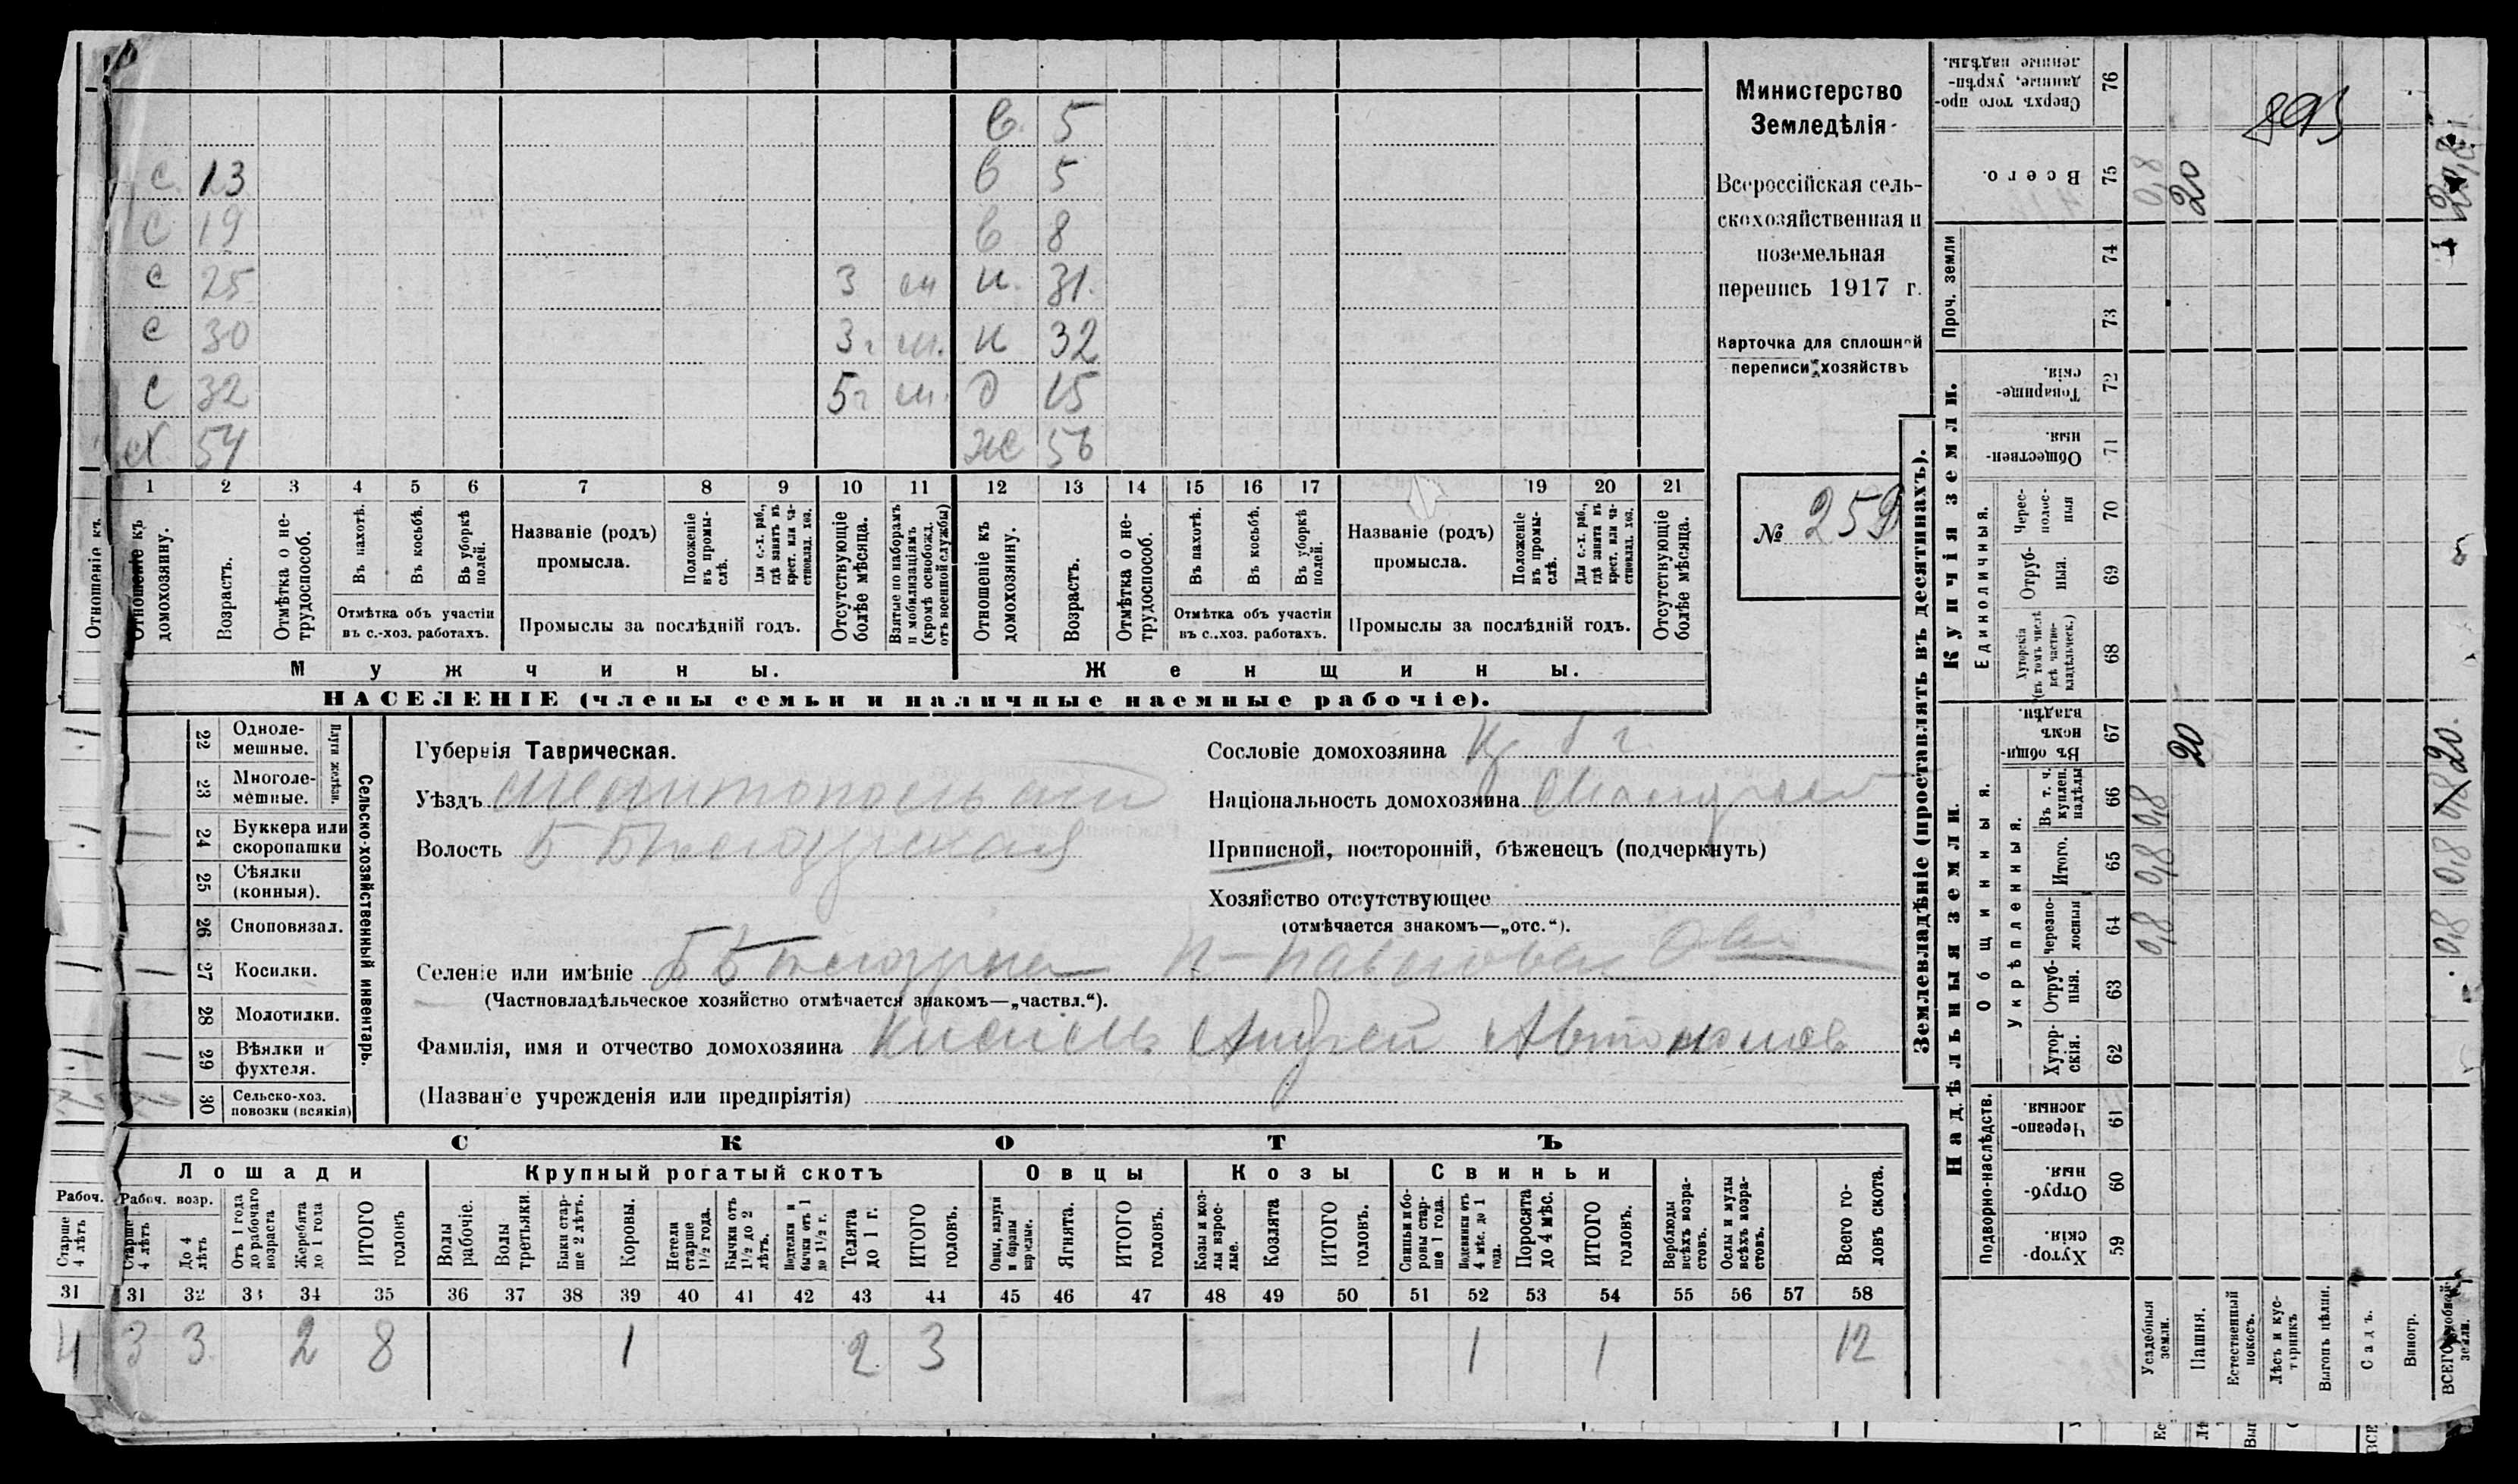 в. 5
с. 13 в 5
с 19 в 8
с 25 3 м н. 31.
с 30 3 г м. н 32
с 32 5 г м. д 15
х. 54 ж 56
1 2 3 4 5 6 7 8 9 10 11 12 13 14 15 16 17 19 20 21
Отношеніе къ домохозяину.
Возрастъ.
Отмѣтка о не-
трудоспособ.
Въ пахотѣ.
Въ косьбѣ.
Въ уборкѣ
полей.
Отмѣтка объ участіи
въ с.-хоз. работахъ.
Названіе (родъ)
промысла.
Положеніе
въ промы-
слѣ.
Для с.-х. раб.,
гдѣ занятъ въ
крест. или ча-
стновлад. хоз.
Промыслы за послѣдній годъ.
Отсутствующіе
болѣе мѣсяца.
Взятые по наборамъ
и мобилизаціямъ
(кромѣ освобожд.
отъ военной службы)
Отношеніе къ
домохозяину.
Возрастъ.
Отмѣтка о не-
трудоспособ.
Въ пахотѣ.
Въ косьбѣ.
Въ уборкѣ
полей.
Отмѣтка объ участіи
въ с..хоз. работахъ.
Названіе (родъ)
промысла.
Положеніе
въ промы-
слѣ.
Для с.-х. раб.,
гдѣ занята въ
крест. или ча-
стновлад. хоз.
Промыслы за послѣдній годъ.
Отсутствующіе
болѣе мѣсяца.
Мужчины. Женщины.
НАСЕЛЕНІЕ (члены семьи и наличные наемные рабочіе).
Министерство
Земледѣлія
Всероссійская сель-
скохозяйственная и
поземельная
перепись 1917 г.
Карточка для сплошной
переписи хозяйствъ
№ 259
22 Одноле-
мешные.
23 Многоле-
мешные.
Плуги желѣзн.
24 Буккера или
скоропашки
25 Сѣялки
(конныя).
26 Сноповязал.
27 Косилки.
28 Молотилки.
29 Вѣялки и
фухтеля.
30 Сельско-хоз.
повозки (всякія)
Сельско-хозяйственный инвентарь.
Губернія Таврическая.
Уѣздъ Мелитопольскій
Волость Б Бѣлозерская
Сословіе домохозяина
Національность домохозяина
Приписной, посторонній, бѣженецъ (подчеркнуть)
Хозяйство отсутствующее
(отмѣчается знакомъ—„отс.“).
Селеніе или имѣніе Б Бѣлозерка П-Павловка
(Частновладѣльческое хозяйство отмѣчается знакомъ—„частвл.“).
Фамилія, имя и отчество домохозяина Кисиль Андрей Автономовъ
(Названіе учрежденія или предпріятія)
СКОТЪ
Лошади Крупный рогатый скотъ Овцы Козы Свиньи
Рабоч. Рабоч. возр.
Старше
4 лѣтъ
Старше
4 лѣтъ
До 4
лѣтъ
Отъ 1 года
до рабочаго
возраста
Жеребята
до 1 года
ИТОГО
головъ
Волы
рабочіе.
Волы
третьяки.
Быки стар-
ше 2 лѣтъ.
Коровы.
Нетели
старше
1½ года.
Бычки отъ
1½ до 2
лѣтъ.
Подтелки и
бычки отъ 1
до 1½ г.
Телята
до 1 г.
ИТОГО
головъ.
Овцы, валухи
и бараны
взрослые.
Ягнята.
ИТОГО
головъ.
Козы и коз-
лы взрос-
лые.
Козлята
ИТОГО
головъ.
Свиньи и бо-
ровы стар-
ше 1 года.
Подсвинки отъ
4 мѣс. до 1
года.
Поросята
до 4 мѣс.
ИТОГО
головъ.
Верблюды
всѣхъ возра-
стовъ.
Ослы и мулы
всѣхъ возра-
стовъ.
Всего го-
ловъ скота.
31 31 32 33 34 35 36 37 38 39 40 41 42 43 44 45 46 47 48 49 50 51 52 53 54 55 56 57 58
4 3 3 2 8 1 2 3 1 1 12
Землевладѣніе (проставлять въ десятинахъ).
Надѣльныя земли. Купчія земли. Проч. земли
Подворно-наслѣдств.
Общинныя.
Укрѣпленныя.
Единоличныя.
Сверхъ того про-
данные, укрѣп-
ленные надѣлы. 76
Всего. 75 0,8 20
74
73
Товарище-
скія. 72
Обществен-
ныя. 71
Черес-
полос-
ныя 70
Отруб-
ныя. 69
Хуторскія
(въ томъ числѣ
всѣ частно-
владѣльческ.) 68
Въ общин-
номъ
владѣн. 67 20 20.
Въ т. ч.
куплен.
надѣлы 66 0,8
Итого. 65 0,8 0,8
Черезпо-
лосныя 64 0,8 0,8
Отруб-
ныя. 63
Хутор-
скія. 62
Черезпо-
лосныя. 61
Отруб-
ныя. 60
Хутор-
скія. 59
Усадебныя
земли.
Пашня.
Естественный
покосъ.
Лѣсъ и кус-
тарникъ
Выгонъ цѣлин.
Садъ.
Виногр.
893
Отношеніе къ